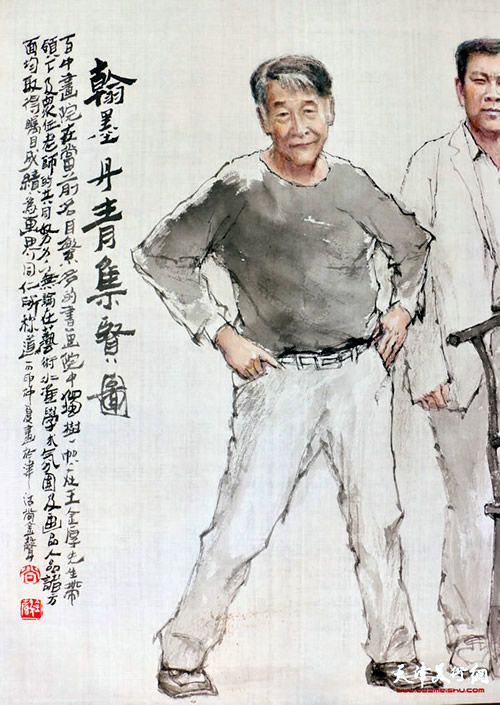 翰墨丹青集賢圖
百中畫院在當前名目繁多的書畫院中獨樹一帜在王金厚先生帶
領下及眾位老師的共同努力無論在藝術水準學术氛圍及画品人品諸方
面均取得矚目成績為画界同仁所称道辛卯仲夏畫於津沽尚金聲
尚
天津美术网
www.022meishu.com